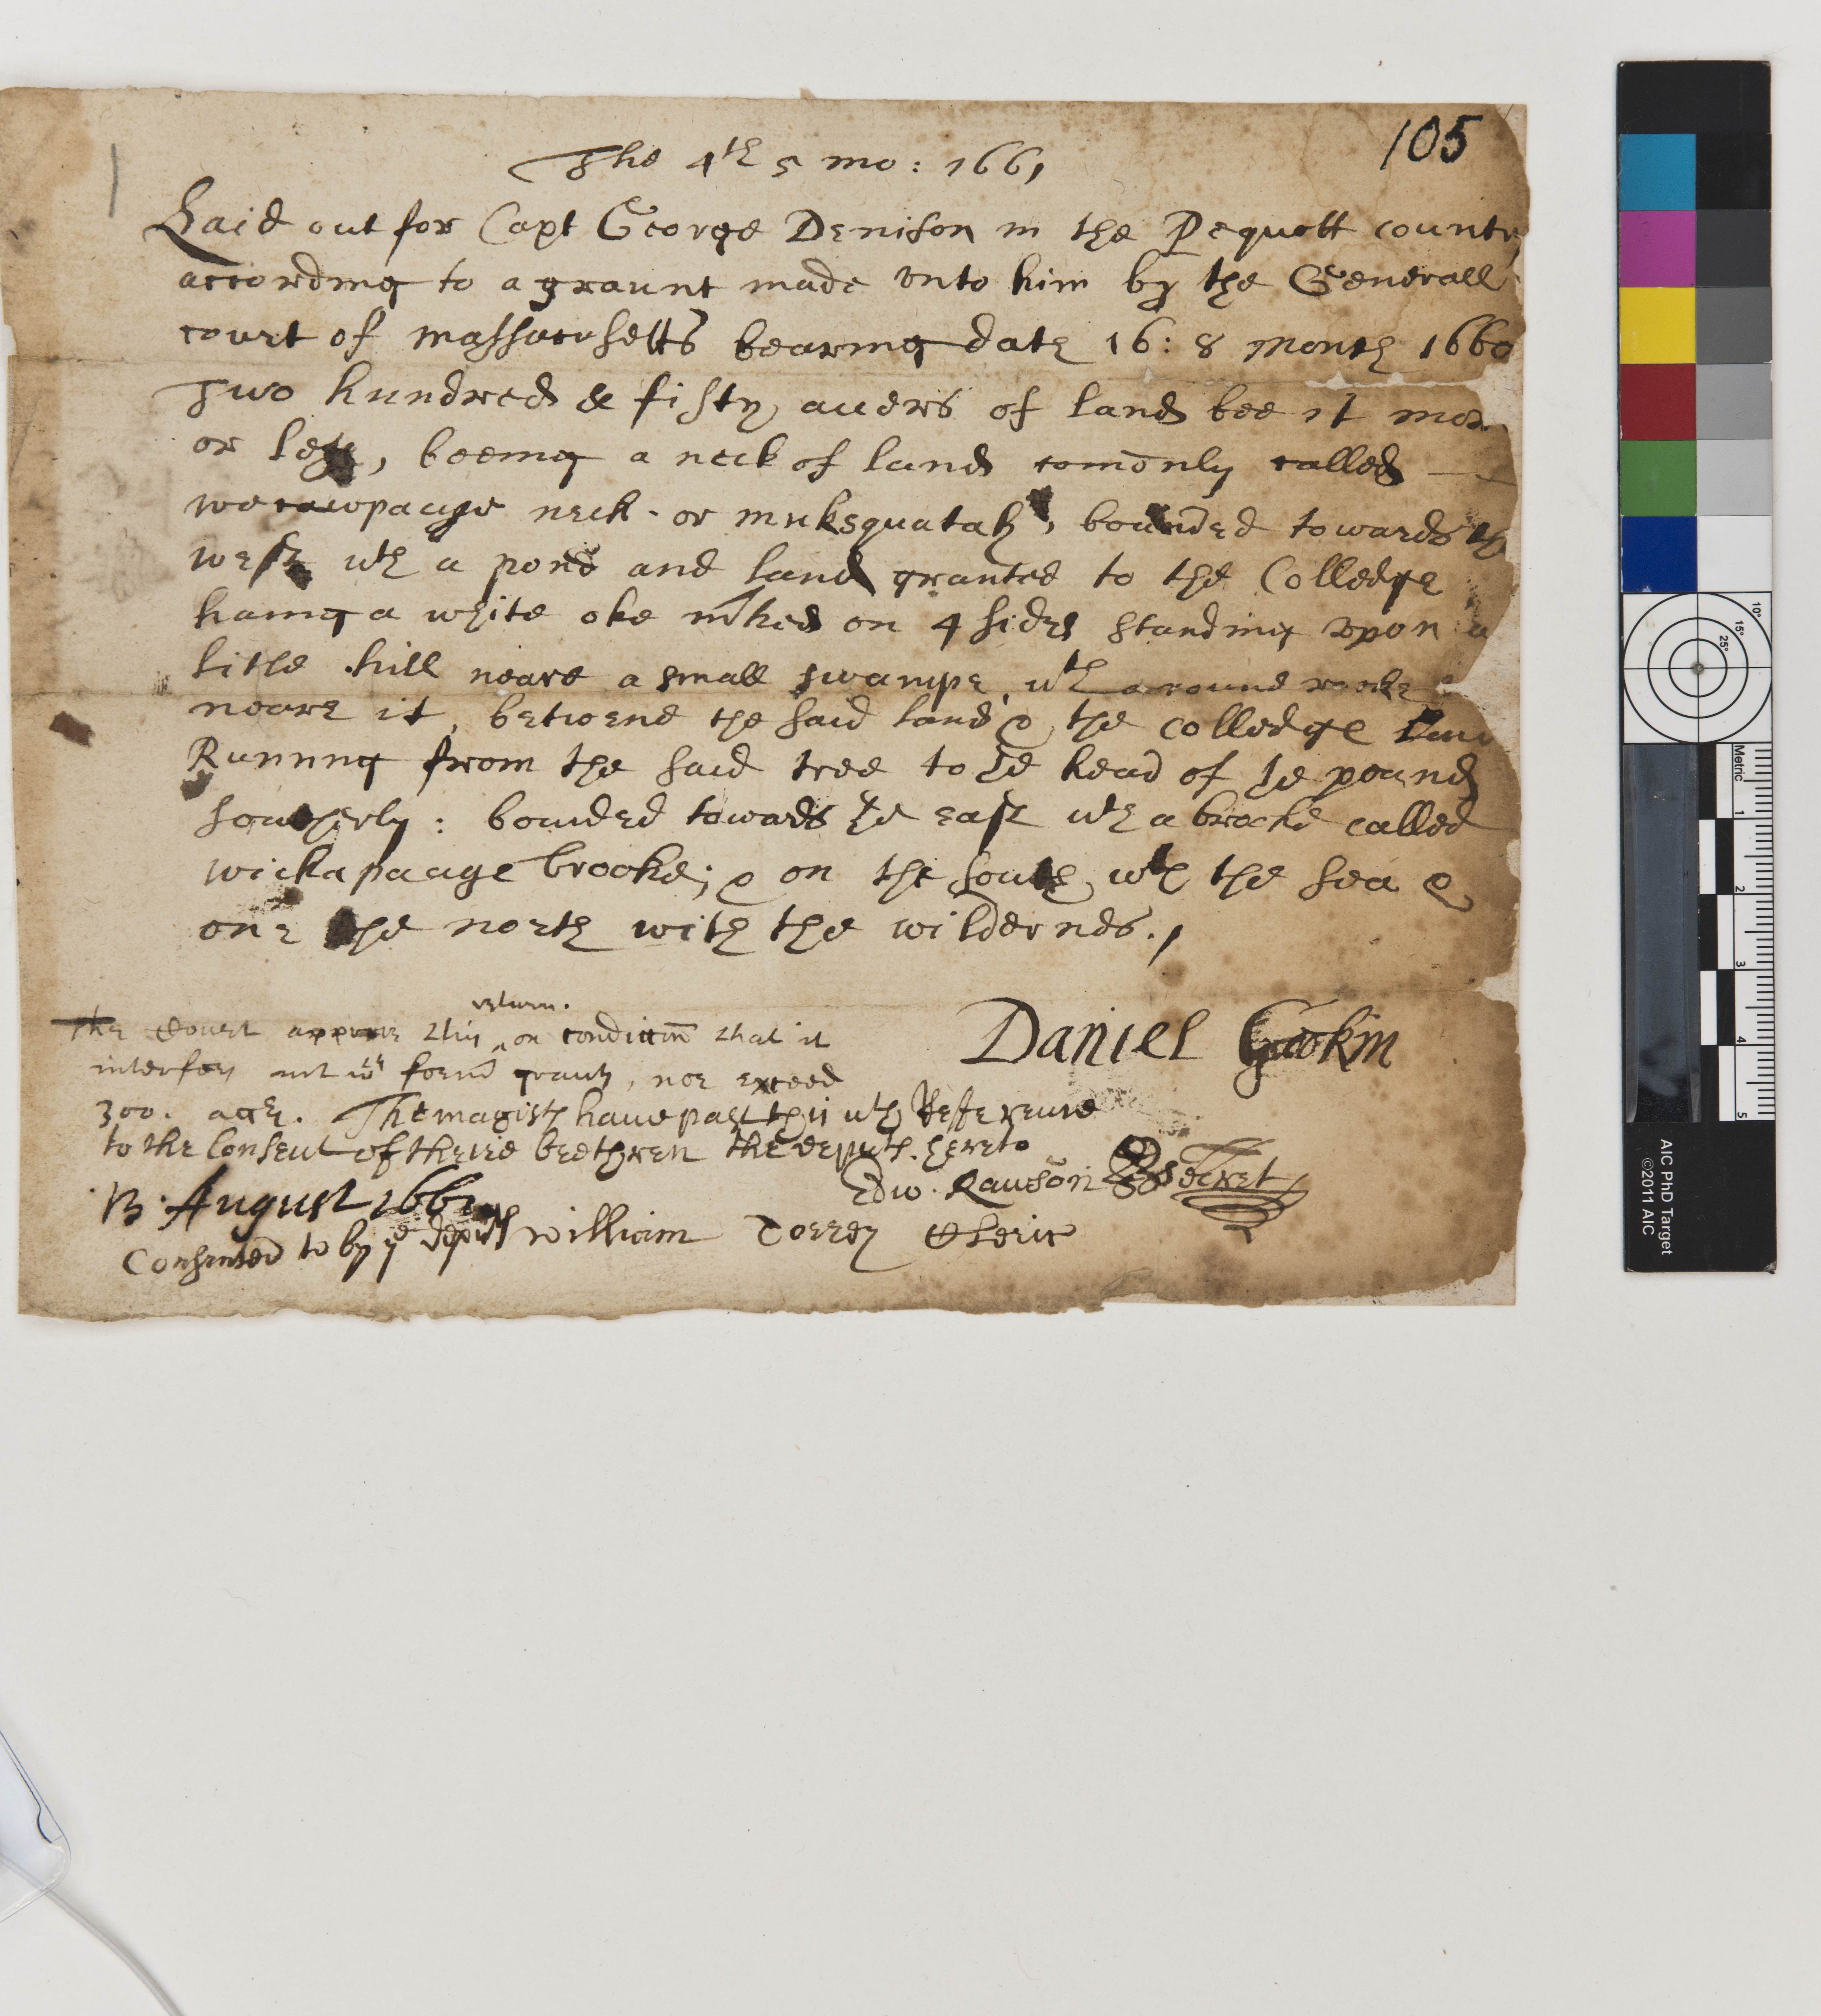 105
The 4th 5 mo: 1661
Laid out for Capt George Denison in the Pequott countr
according to a graunt made vnto him by the Generall
court of massacusetts bearing date 16: 8 month 1660
Two hundred & fifty accers of land bee it mor
or less, beeing a neck of land comonly called
wecawpauge neck or muksquatah, bounded towards th
west wth a pond and land granted to the Colledge
haing a white oke mrked on 4 sides standing vpon a
litle hill neare a small swampe, wth a round rocke
neare it, betweene the said land & the colledge land
Running from the said tree to ye head of ye pound
southerly: bounded towards ye east wth a brooke called
wickapaage brooke; & on the south wth the sea &
one the north with the wildernes.
Daniel Gookin
return.
The Court approve this on condition that it
interfere not wth former graunts, nor exceed
300. acres. The magists have past this wth Refference
to the Consent of theire brethren the deputs hereto
13 August 1661 Edw. Rawson Secret
Consented to by ye deputs William Torrey Cleric
10°
15°
25°
Metric
1
2
3
4
5
AIC PhD Target
©2011 AIC